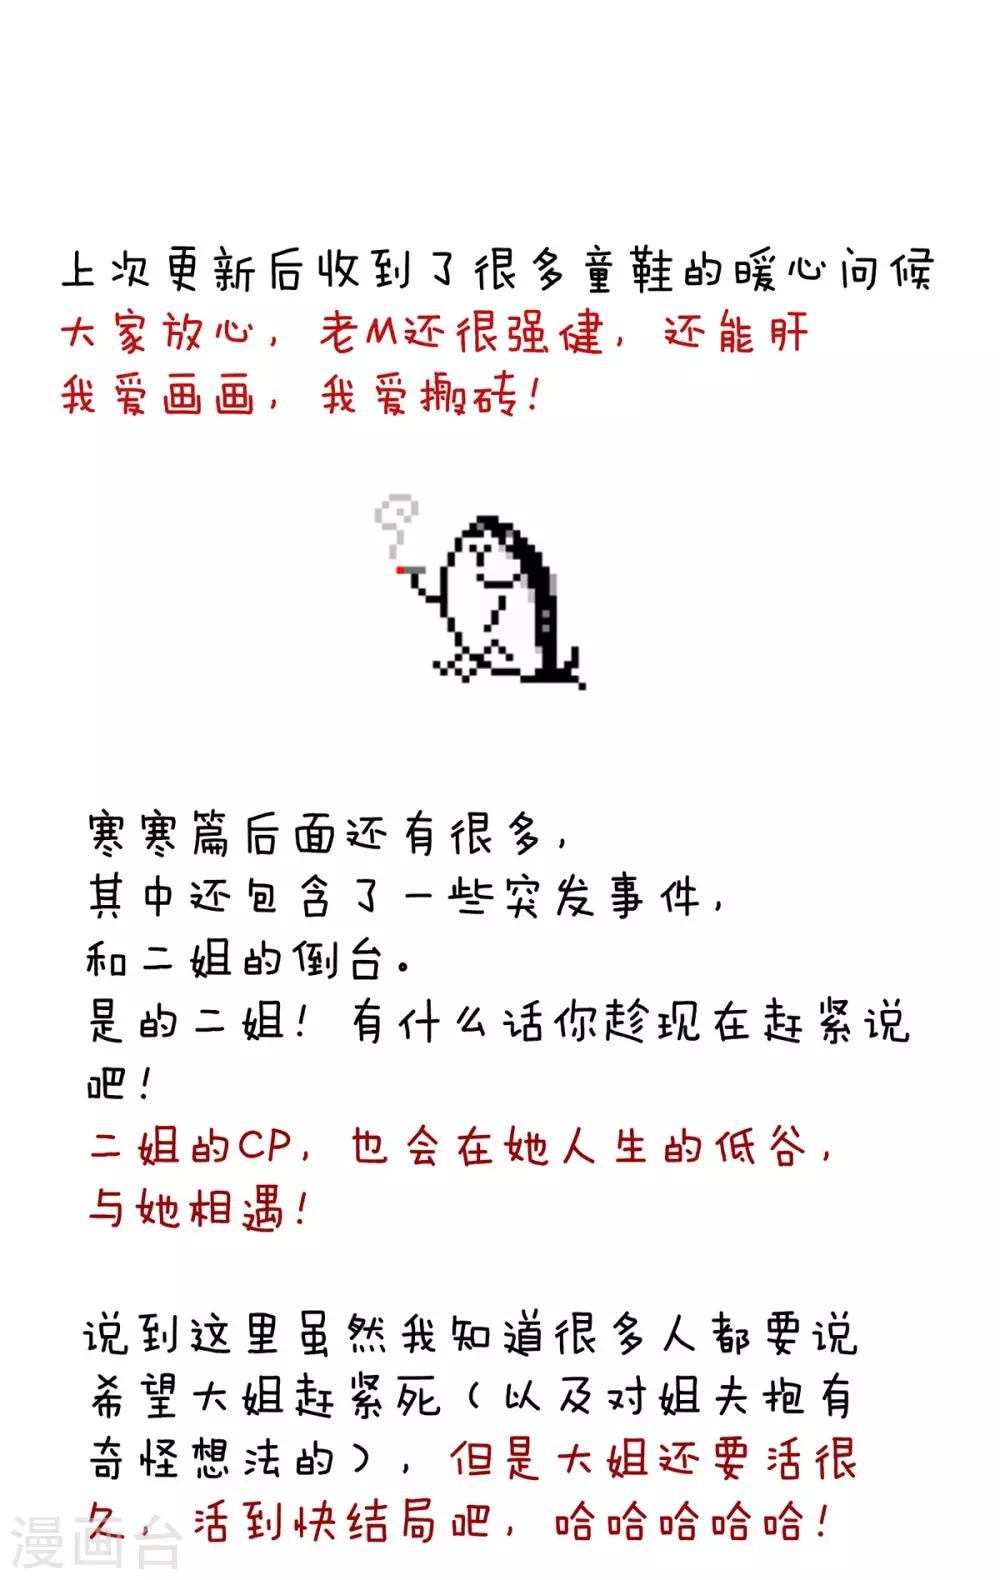 上次更新后收到了很多童鞋的暖心问候
大家放心，老M还很强健，还能肝
我爱画画，我爱搬砖！
寒寒篇后面还有很多，
其中还包含了一些突发事件，
和二姐的倒台。
是的二姐！有什么话你趁现在赶紧说
吧！
二姐的CP，也会在她人生的低谷，
与她相遇！
说到这里虽然我知道很多人都要说
希望大姐赶紧死（以及对姐夫抱有
奇怪想法的），但是大姐还要活很
久，活到快结局吧，哈哈哈哈哈！
漫画台